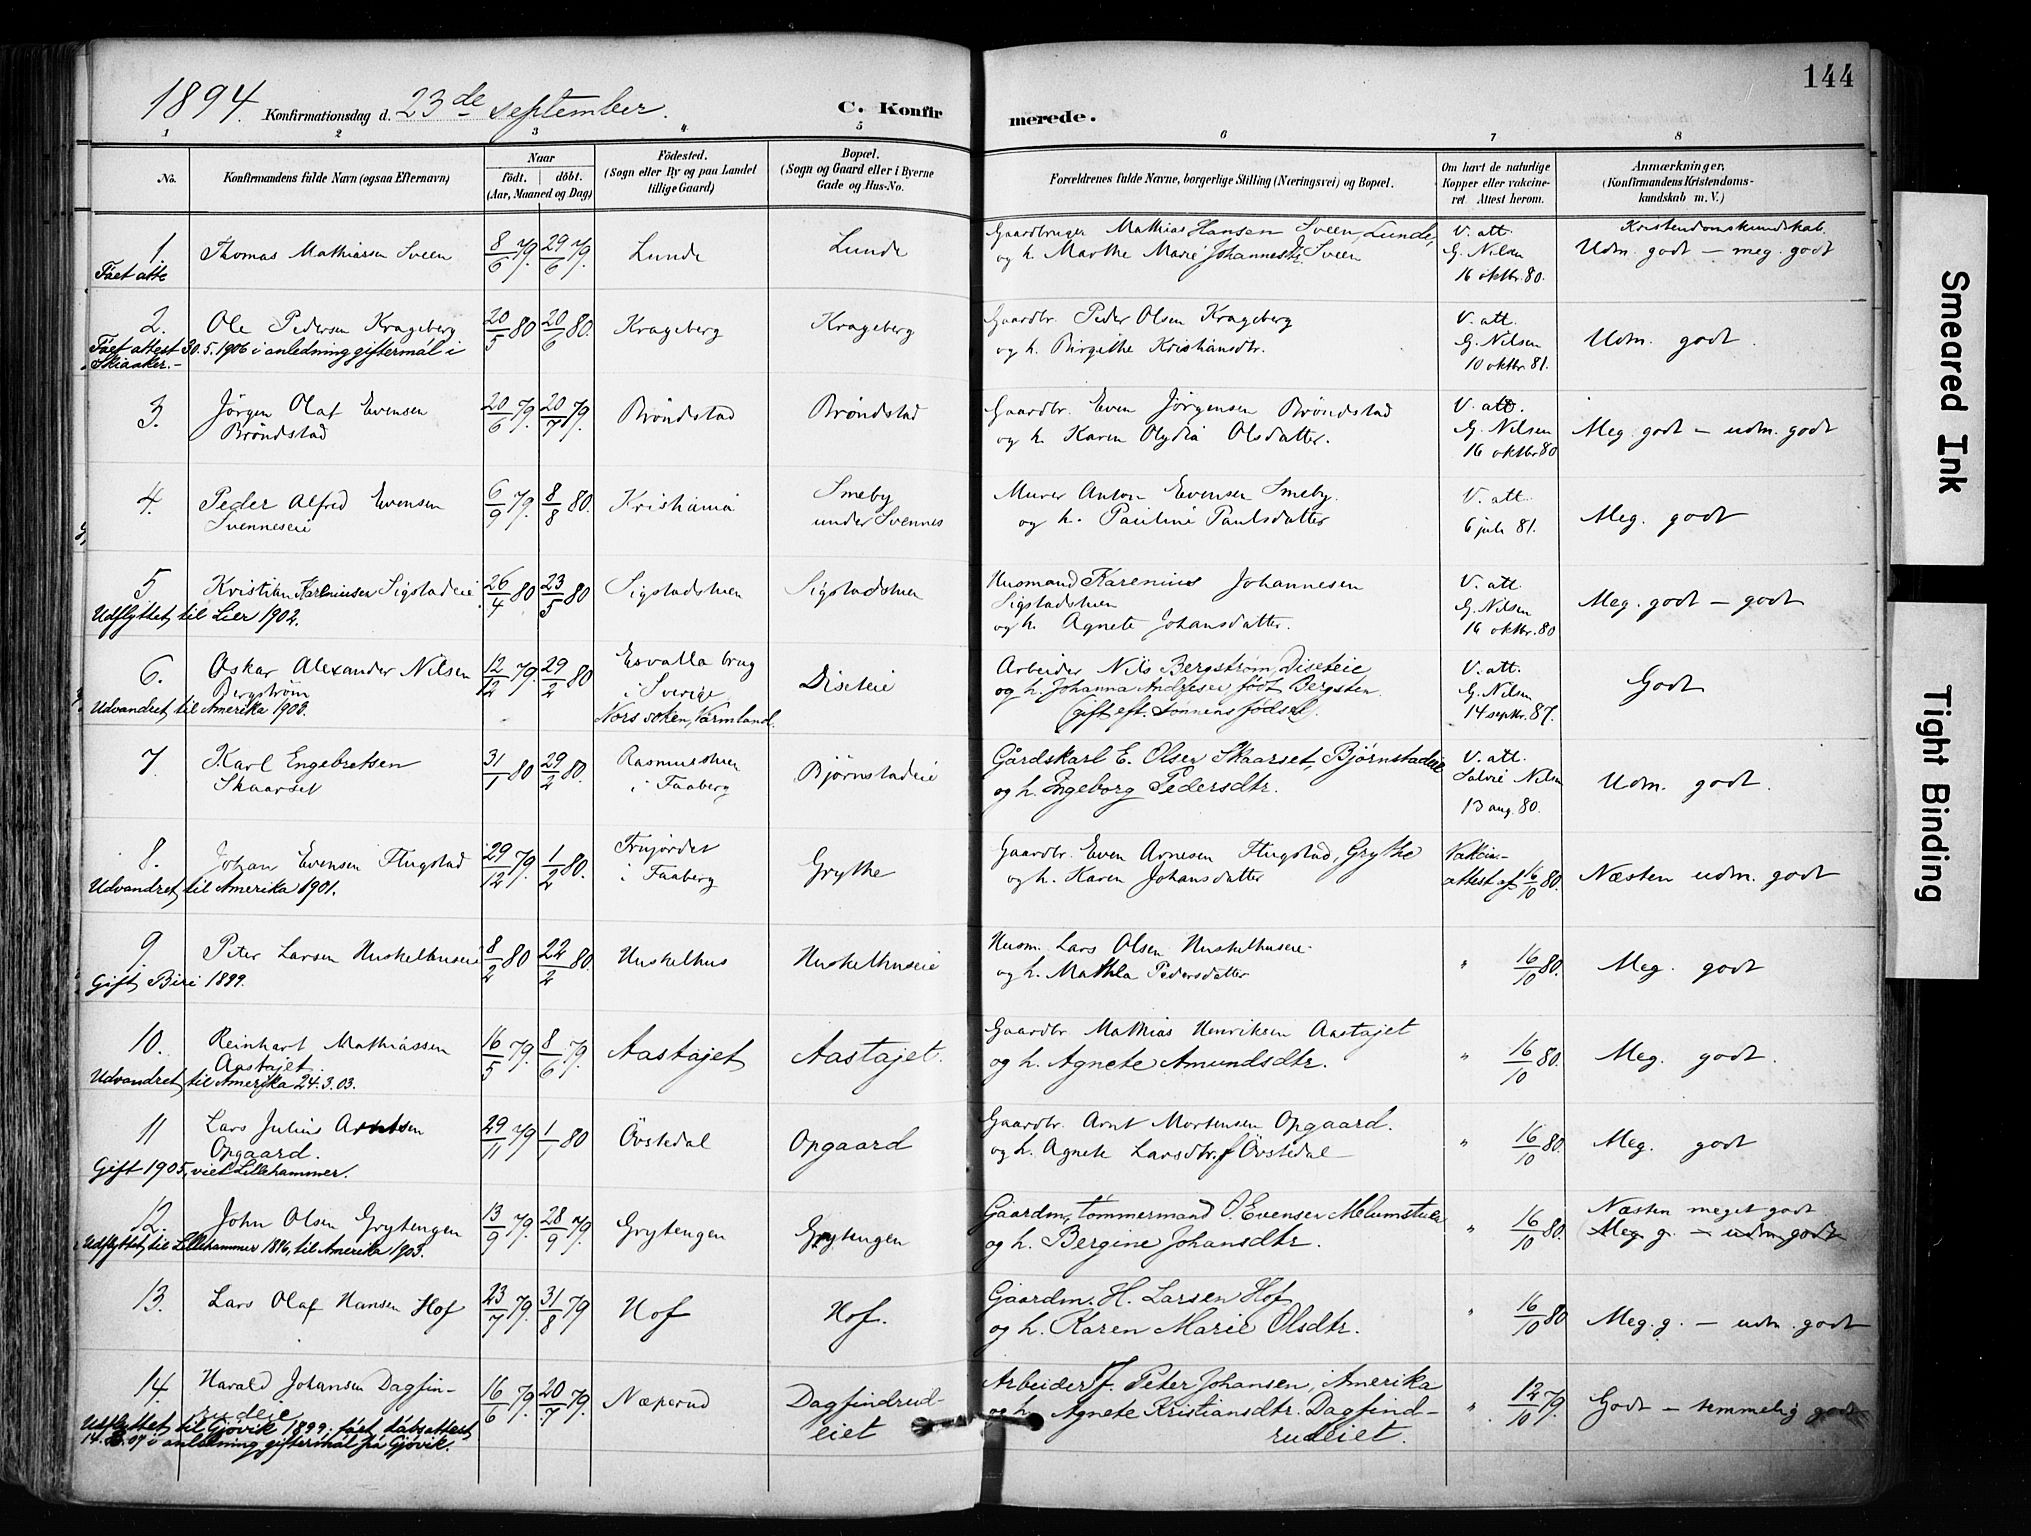 144
1894. Konfirmationsdag d. 23de september. C. Konfirmerede.
1 2 3 4 5 6 7 8
No. Konfirmandens fulde Navn (ogsaa Efternavn) Naar födt. döbt. (Aar, Maaned og Dag) Födested. (Sogn eller By og paa Landet tillige Gaard) Bopæl. (Sogn og Gaard eller i Byerne Gade og Hus-No. Forældrenes fulde Navne, borgerlige Stilling (Næringsvei) og Bopæl. Om havt de naturlige Kopper eller vakcineret. Attest herom. Anmærkninger, (Konfirmandens Kristendomskundskab m. V.)
1. Thomas Mathiasen Sveen 8/6 79. 29/6 79. Lunde Lunde Gaardbruger Mathias Hansen Sveen, Lunde, V. att. Kristendomskundskab.
Fået atte og h. Marthe Marie Johannesdtr. Sveen G. Nilsen Udm. godt – meg. godt
16 oktbr. 80.
2. Ole Pedersen Krageberg 20/5 80 20/6 80. Krageberg Krageberg Gaardbr. Peder Olsen Krageberg V. att.
Fået attest 30.5.1906 i anledning giftermål i og h. Birgithe Kristiansdtr. G. Nilsen Udm. godt.
Skiaaker.– 10 oktbr. 81.
3. Jørgen Olaf Evensen 20/6 79. 20/7 79. Brøndstad Brøndstad Gaardbr. Even Jørgensen Brøndstad V. att.
Brøndstad og h. Karen Olydia Olsdatter. G. Nilsen Meg. godt – udm. godt
16 oktbr 80
4. Peder Alfred Evensen 6/9 79. 8/8 80. Kristiania Smeby Murer Anton Evensen Smeby. V. att.
Svenneseie under Svennes og h. Pauline Paulsdatter 6 juli 81. Meg. godt
5. Kristian Kareniusen Sigstadeie 26/4 80 23/5 80 Sigstadstuen Sigstadstuen Husmand Karenius Johannesen V. att.
Udflyttet til Lier 1902. Sigstadstuen G. Nilsen Meg. godt – godt
og h. Agnete Johansdatter. 16 oktbr. 80
6. Oskar Alexander Nilsen 12/12 79. 29/2 80 Esvalla brug Diseteie Arbeider Nils Bergstrøm, Diseteie V. att.
Bergstrøm i Sverige og h. Johanna Andresen født Bergsten. G. Nilsen Godt
Udvandret til Amerika 1902. Nors soken, Värmland. (gift eft. sønnens fødsel). 14 septbr. 87.
7. Karl Engebretsen 31/1 80 29/2 80. Rasmusstuen Bjørnstadeie Gårdskarl E. Olsen Skaarset, Bjørnstadeie V. att.
Skaarset i Faaberg og h. Ingeborg Pedersdtr. Nilsen Udm. godt.
13 aug. 80.
8. Johan Evensen Flugstad 29/12 79. 1/2 80. i Faaberg Grythe Gaardbr. Even Arnesen Flugstad, Grythe Vakcin-
Udvandret til Amerika 1901. og h. Karen Johansdatter attest af 16/10 80. Næsten udm. godt
9. Peter Larsen Huskelhuseie 8/2 80 22/2 80. Huskelhus Huskelhuseie Husm. Lars Olsen Huskelhuseie
Gift, Biri 1899. og h. Mathla Pedersdatter " 16/10 80. Meg. godt
10. Reinhart Mathiassen 16/5 79. 8/6 79. Aastajet Aastajet. Gaardbr. Mathias Henriksen Aastajet
Aastajet og h. Agnete Amundsdtr. " 16/10 80. Meg. godt.
Udvandret til Amerika 24.3.03.
11 Lars Julius Arntsen 29/11 79 1/1 80 Övstedal Opgaard Gaardbr. Arnt Mortensen Opgaard.
Opgaard. og h. Agnete Larsdtr. f. Övstedal " 16/10 80. Meg. godt
Gift 1905, viet Lillehammer.
12. John Olsen Grytengen 13/9 79. 28/9 79. Grytengen Grytengen Gaardm., tømmermand O. Evensen Melumstuen Næsten meget godt
Udflyttet til Lillehammer 1896, til Amerika 1903. og h. Bergine Johansdtr. " 16/10 80. (Meg. g. – udm. godt
13. Lars Olaf Hansen Hof 23/7 79. 31/8 79 Hof Hof. Gaardm. H. Larsen Hof
og h. Karen Marie Olsdtr. " 16/10 80 Meg. g. – udm. godt
14. Harald Johansen Dagfin- 16/6 79. 20/7 79. Næperud Dagfindrud- Arbeider f. Peter Johansen, i Amerika
rudeie eiet og h. Agnete Kristiansdtr. Dagfind- " 12/10 79. Godt – temmelig godt
Udflyttet til Gjøvik 1899, fået dåbsattest rudeiet.
07 i anledning giftermål på Gjøvik.
Smeared Ink
Tight Binding